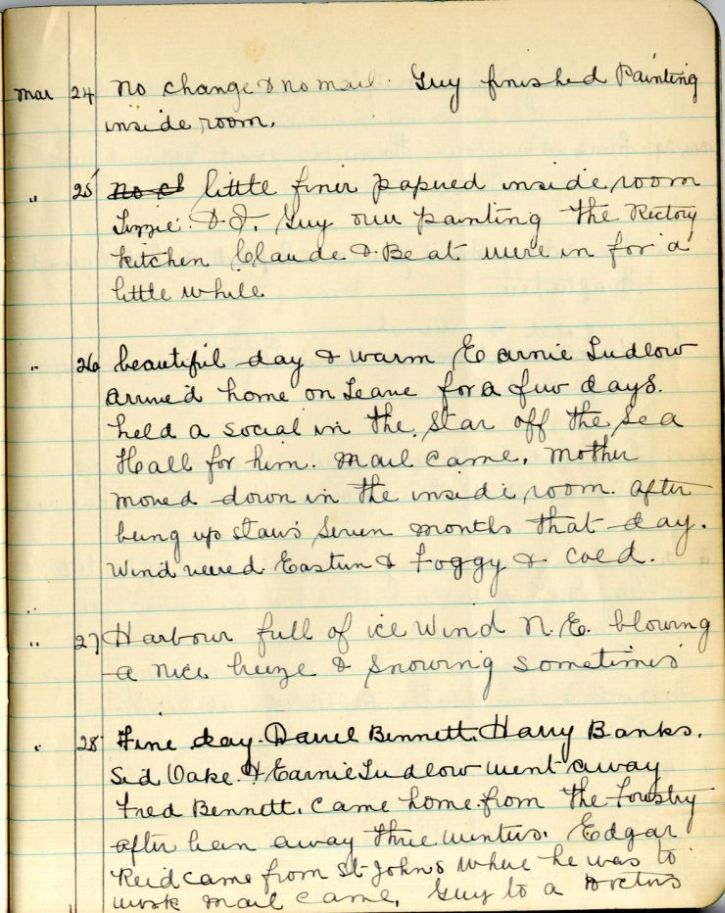 Mar 24 no change & no mail. Guy finished Painting
inside room.
" 25 no ch little finer papered inside room
Lizzie. & I. Guy over painting the Rectory
kitchen Claude & Beat were in for a
little while
" 26 beautiful day & warm Earnie Ludlow
arrived home on Leave for a few days.
held a social in the Star off the Sea
Hall for him. mail came. Mother
moved down in the inside room. after
being up stairs Seven months that day.
Wind veered Eastern & Foggy & Cold.
" 27 Harbour full of ice Wind N.E. blowing
a nice breeze & Snowing Sometimes
" 28 Fine day. Darrel Bennett. Harry Banks.
Sid Oake. & Earnie Ludlow went away
Fred Bennett. came home from the Forestry
after been away three winters. Edgar
Reid came from St Johns where he was to
work mail came. Guy to a Doctors